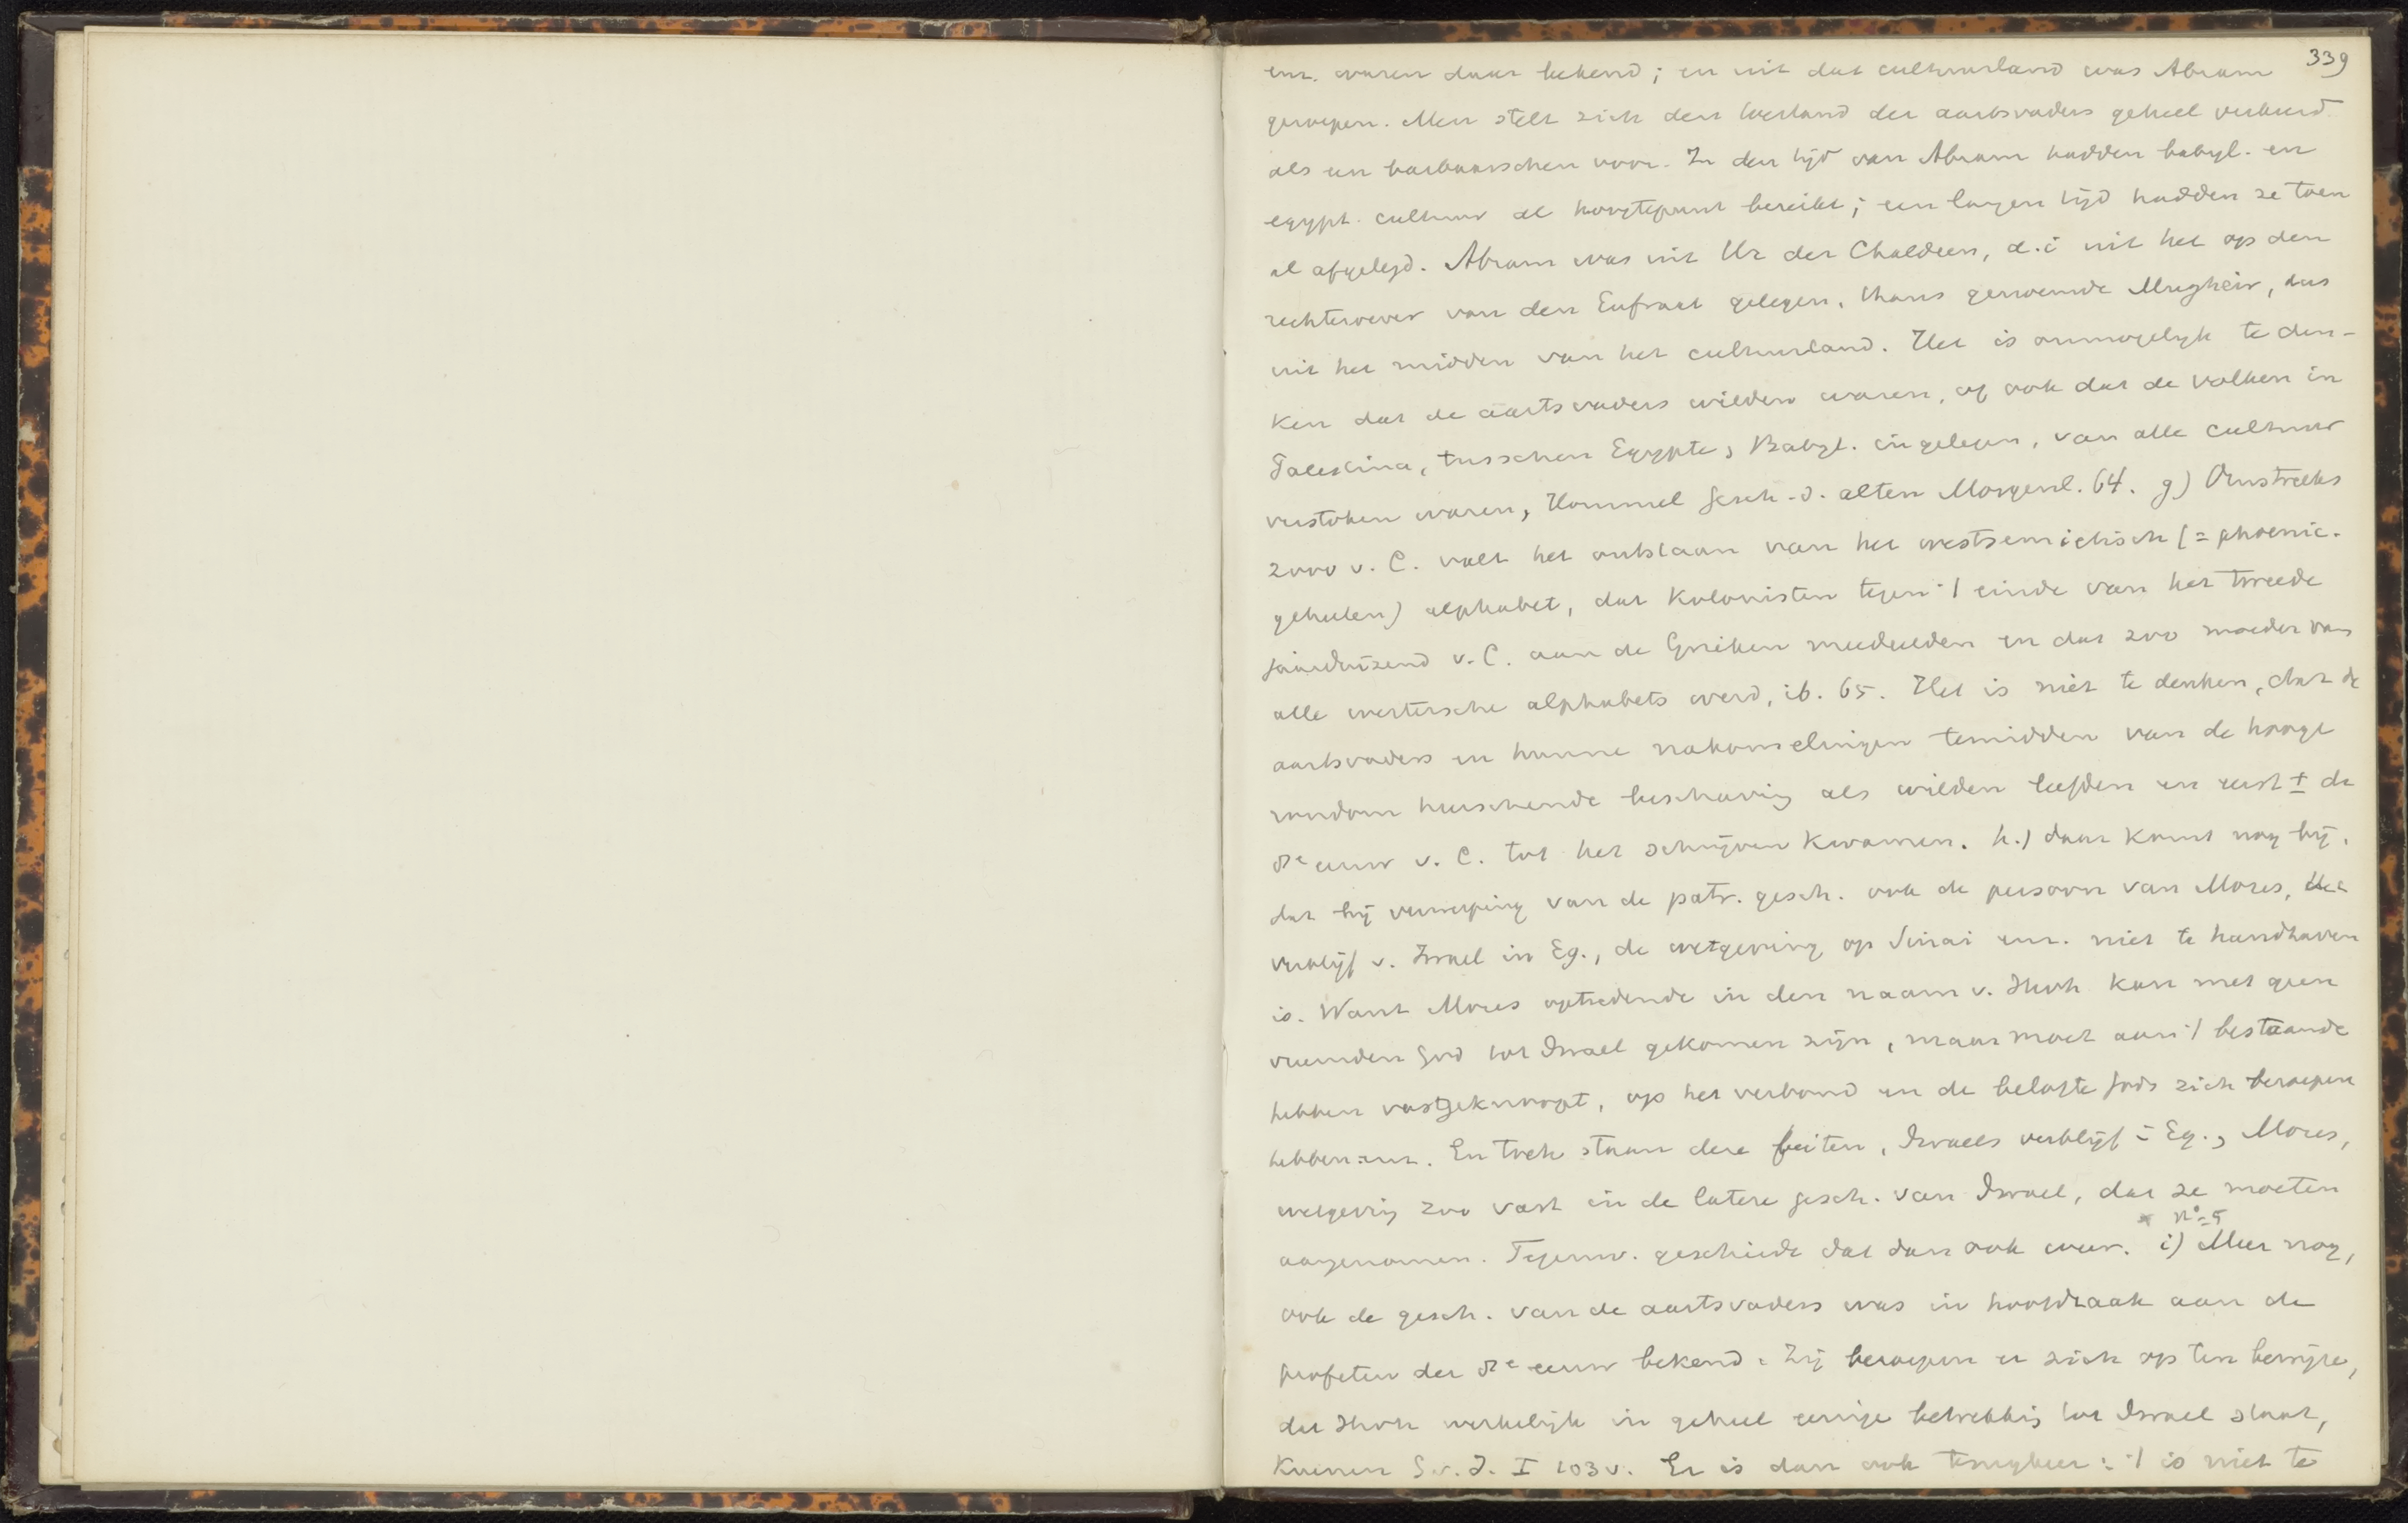 339
enz. waren daar bekend; en uit dat cultuurland was Abram
geroepen. Men stelt zich den toestand der aartsvaders geheel verkeerd
als een barbaarschen voor. In den tijd van Abram hadden babyl. en
egypt. cultuur al hoogtepunt bereikt; een langen tijd hadden ze toen
al afgelegd. Abram was uit Ur der Chaldeen, d.i uit het op den
rechteroever van den Eufraat gelegen, thans genoemde Mugheir, dus
uit het midden van het cultuurland. Het is onmogelijk te den-
ken dat de aartsvaders wilden waren, of ook dat de volken in
Palestina, tusschen Egypte, Babyl. ingelegen, van alle cultuur
verstoken waren, Hommel Gesch. d. alten Morgenl. 64. g) Omstreeks
2000 v. C. valt het ontstaan van het westsemietisch (= phoenic.
geheeten) alphabet, dat kolonisten tegen 't einde van het tweede
jaarduizend v. C. aan de Grieken mededeelden en dat zoo moeder van
alle westersche alphabets werd, ib. 65. Het is niet te denken, dat de
aartsvaders en hunne nakomelingen temidden van de hooge
rondom heerschende beschaving als wilden leefden en eerst ± de
8e eeuw v. C. tot het schrijven kwamen. h.) daar komt nog bij,
dat bij verwerping van de patr. gesch. ook de persoon van Mozes, het
verblijf v. Israel in Eg., de wetgeving op Sinai enz. niet te handhaven
is. Want Mozes optredende in den naam v. Jhvh kan met geen
vreemden God tot Israel gekomen zijn, maar moet aan 't bestaande
hebben vastgeknoopt, op het verbond en de belofte Gods zich beroepen
hebben enz. En toch staan deze feiten, Israels verblijf in Eg., Mozes,
wetgeving zoo vast in de latere gesch. van Israel, dat ze moeten
n° 5
aangenomen. Tegenw. geschiedt dat dan ook weer. i) Meer nog,
ook de gesch. van de aartsvaders was in hoofdzaak aan de
profeten der 8e eeuw bekend. Zij beroepen er zich op ten bewijze,
dat Jhvh werkelijk in geheel eenige betrekking tot Israel staat,
Kuenen G. v. I. I 103 v. Er is dan ook terugkeer: 't is niet te